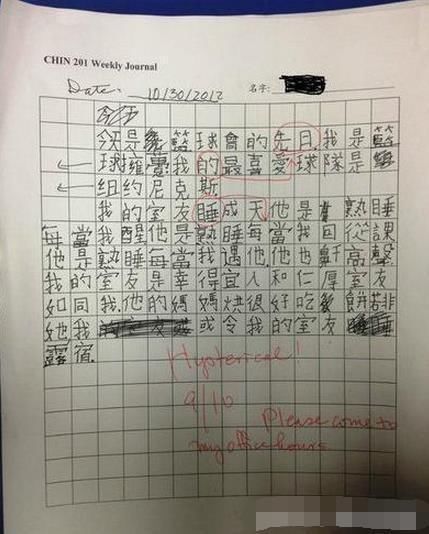 CHIN 201 Weekly Journal
Date: 10/30/2012 名字:
今是 籃球會的先日我是籃
球擁躉我的最喜愛球隊是
纽约尼克斯
我的室友睡成天他是 熟睡
每當我醒他是熟睡每當我回從課
他是熟睡每當我遇他他也鼾高聲
我的室友是幸得宜人和仁厚室友
如同我他的媽媽烘很好吃 餅若非
她我 或令我的室友
露宿
Hysterical!
9/10
Please come to
my office hours